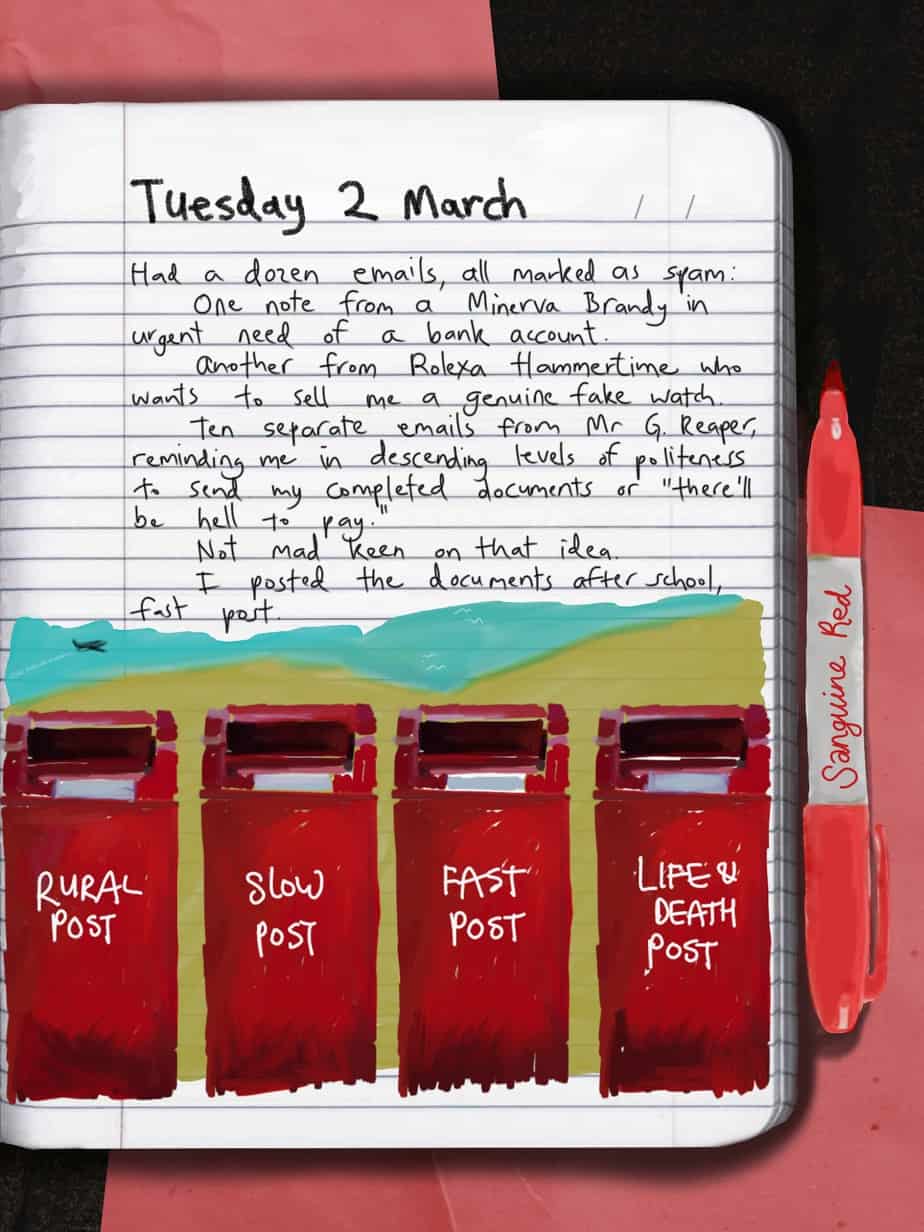 Tuesday 2 March / /
Had a dozen emails, all marked as spam:
One note from a Minerva Brandy in
urgent need of a bank account.
Another from Rolexa Hammertime who
wants to sell me a genuine fake watch.
Ten separate emails from Mr G. Reaper,
reminding me in descending levels of politeness
to send my completed documents or "there'll
be hell to pay."
Not mad keen on that idea.
I posted the documents after school,
fast post.
RURAL
POST
SLOW
POST
FAST
POST
LIFE &
DEATH
POST
Sanguine Red